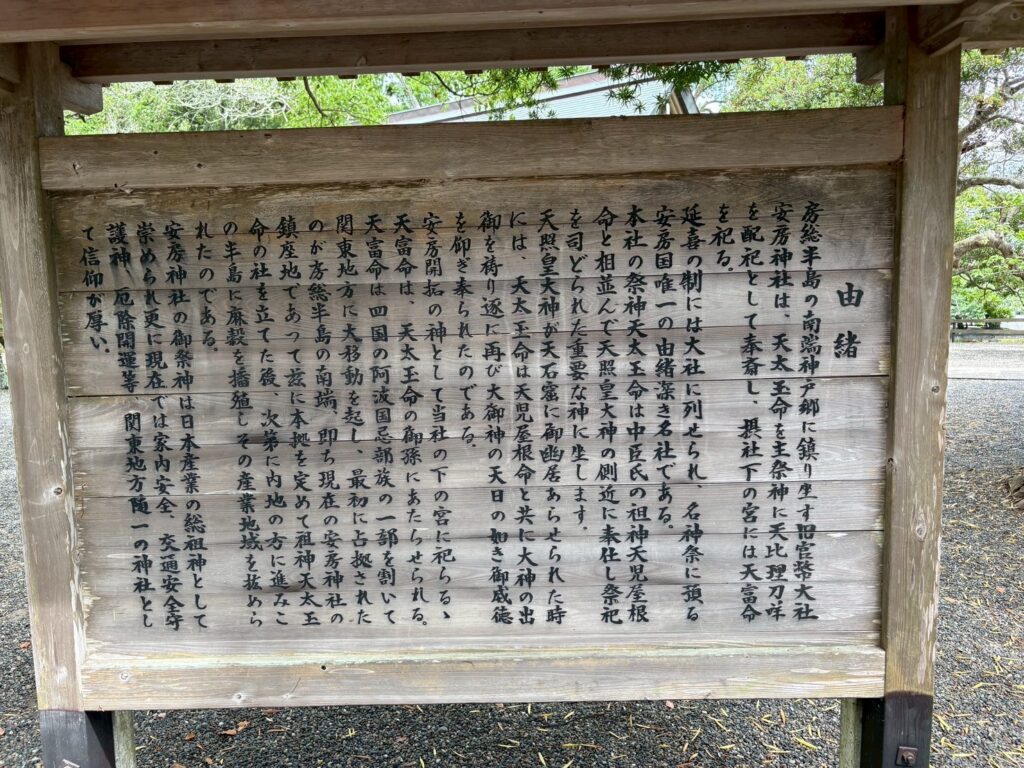 由緒
房総半島の南端神戸郷に鎮り坐す旧官幣大社
安房神社は、天太玉命を主祭神に天比理刀咩
を配祀として奉斎し、摂社下の宮には天富命
を祀る。
延喜の制には大社に列せられ 名神祭に預る
安房国唯一の由緒深き名社である。
本社の祭神天太玉命は中臣氏の祖神天児屋根
命と相並んで天照皇大神の側近に奉仕し祭祀
を司どられた重要な神に坐します。
天照皇大神が天石窟に御幽居あらせられた時
には、天太玉命は天児屋根命と共に大神の出
御を祷り逐に再び大御神の天日の如き御威徳
を御ぎ奉られたのである。
安房開拓の神として当社の下の宮に祀らるゝ
天富命は、天太玉命の御孫にあたらせられる。
天富命は四国の阿波国忌部族の一部を割いて
関東地方に大移動を起し、最初に占拠された
のが房総半島の南端 即ち現在の安房神社の
鎮座地であって茲に本拠を定めて祖神天太玉
命の社を立てた後、次第に内地の方に進みこ
の半島に麻穀を播殖しその産業地域を拡めら
れたのである。
安房神社の御祭神は日本産業の総祖神として
崇められ更に現在では家内安全、交通安全守
護神、厄除開運等、関東地方随一の神社とし
て信仰が厚い。